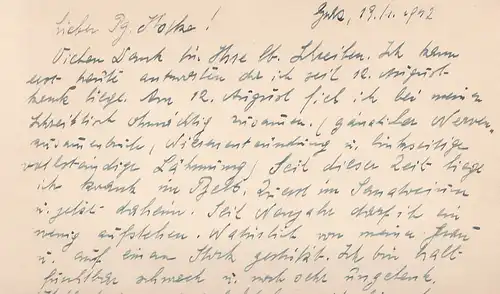 Lieber Pg. Kofke! Graz, 19.1.1942
Vielen Dank für Ihre lb. Schreiben. Ich kann
erst heute antworten da ich seit 12. August
krank liege. Am 12. August fiel ich bei meinem
Schreibtisch ohnmächtig zusammen. (gänzlicher Nerven-
zusammenbruch, Nierenentzündung u. linksseitige
vollständige Lähmung) Seit dieser Zeit liege
ich krank im Bett. Zuerst im Sanatorium
u. jetzt daheim. Seit Neujahr darf ich ein
wenig aufstehen. Natürlich von meiner Frau
u. auf einen Stock gestützt. Ich bin halt
furchtbar schwach u. noch sehr ungelenk,